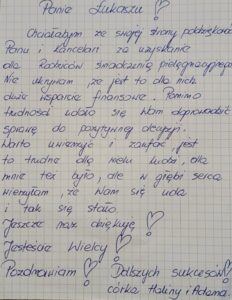 Panie Łukaszu!
Chciałabym ze swojej strony podziękować
Panu i kancelarii za uzyskanie
dla Rodziców świadczenia pielęgnacyjnego
Nie ukrywam, że jest to dla nich
duże wsparcie finansowe. Pomimo
trudności udało się Wam doprowadzić
sprawę do pozytywnej decyzji.
Warto uwierzyć i zaufać, jest
to trudne dla wielu ludzi, dla
mnie też było, ale w głębi serca
wierzyłam, że Wam się uda
i tak się stało.
Jeszcze raz dziękuję!
Jesteście Wielcy!
Pozdrawiam! Dalszych sukcesów!
córka Haliny i Adama.